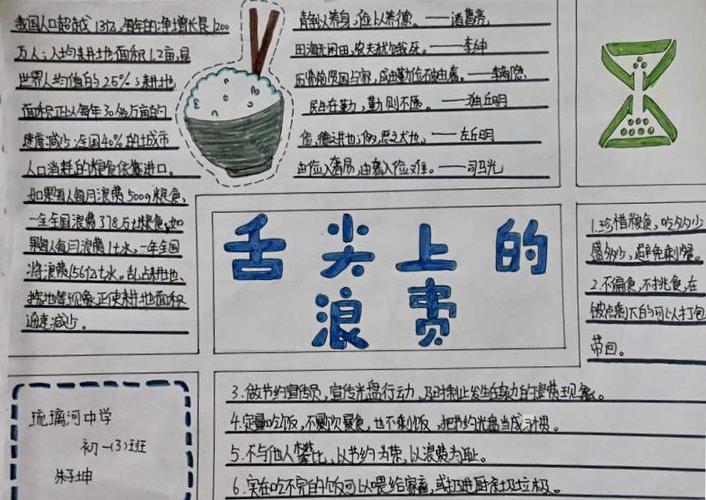 我国人口超过13亿,每年的净增长是1200
万人;人均耕地面积1.2亩,是
世界人均值的25%;耕地
面积正以每年30多万亩的
速度减少;全国40%的城市
人口消耗的粮食依靠进口。
如果每人每月浪费500g粮食,
一年全国浪费378万t粮食;如
果每人每月浪费1t水,一年全国
将浪费156亿t水。乱占耕地、
等现象正使耕地面积
迅速减少。
静以养身,俭以养德。——诸葛亮
田,农夫犹饿死。——李绅
历览前贤国与家,成由勤俭破由奢。——李商隐
民生在勤,勤则不匮。——左丘明
俭,德之共也;侈,恶之大也。——左丘明
由俭入奢易,由奢入俭难。——司马光
舌尖上的
浪费
1.珍惜粮食,吃多少
盛多少,避免剩餐。
2.不偏食,不挑食,在
饭店剩下的可以打包
带回。
3.做节约宣传员,宣传光盘行动,及时制止发生在身边的浪费现象。
4.定量吃饭,不暴饮暴食,也不剩饭,把节约光盘当成习惯。
5.不与他人攀比,以节约为荣,以浪费为耻。
6.实在吃不完的饭可以喂给家畜,或扔进厨余垃圾。
琉璃河中学
初一(3)班
朱子坤